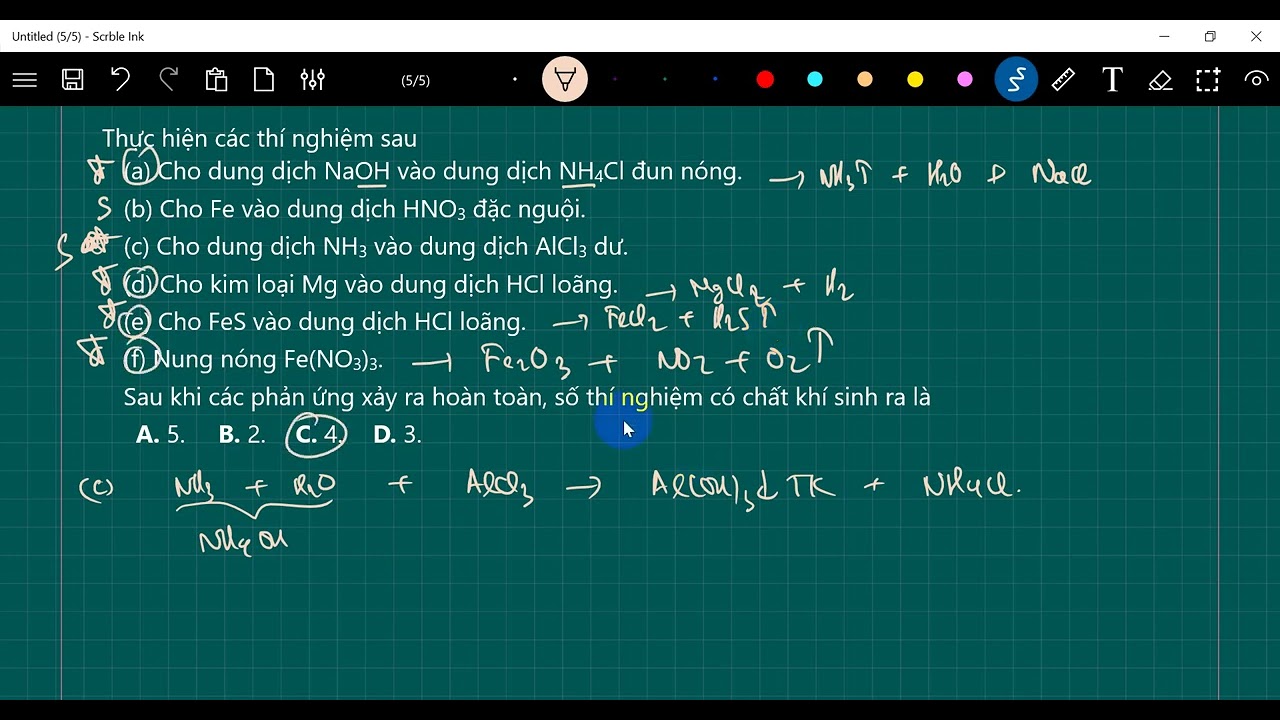 Untitled (5/5) - Scrble Ink
(5/5) T
Thực hiện các thí nghiệm sau
(a) Cho dung dịch NaOH vào dung dịch NH₄Cl đun nóng. → NH₃↑ + H₂O + NaCl
S (b) Cho Fe vào dung dịch HNO₃ đặc nguội.
S (c) Cho dung dịch NH₃ vào dung dịch AlCl₃ dư.
(d) Cho kim loại Mg vào dung dịch HCl loãng. → MgCl₂ + H₂
(e) Cho FeS vào dung dịch HCl loãng. → FeCl₂ + H₂S↑
(f) Nung nóng Fe(NO₃)₃. → Fe₂O₃ + NO₂ + O₂↑
Sau khi các phản ứng xảy ra hoàn toàn, số thí nghiệm có chất khí sinh ra là
A. 5. B. 2. C. 4. D. 3.
(c) NH₃ + H₂O + AlCl₃ → Al(OH)₃↓ TK + NH₄Cl.
NH₄OH